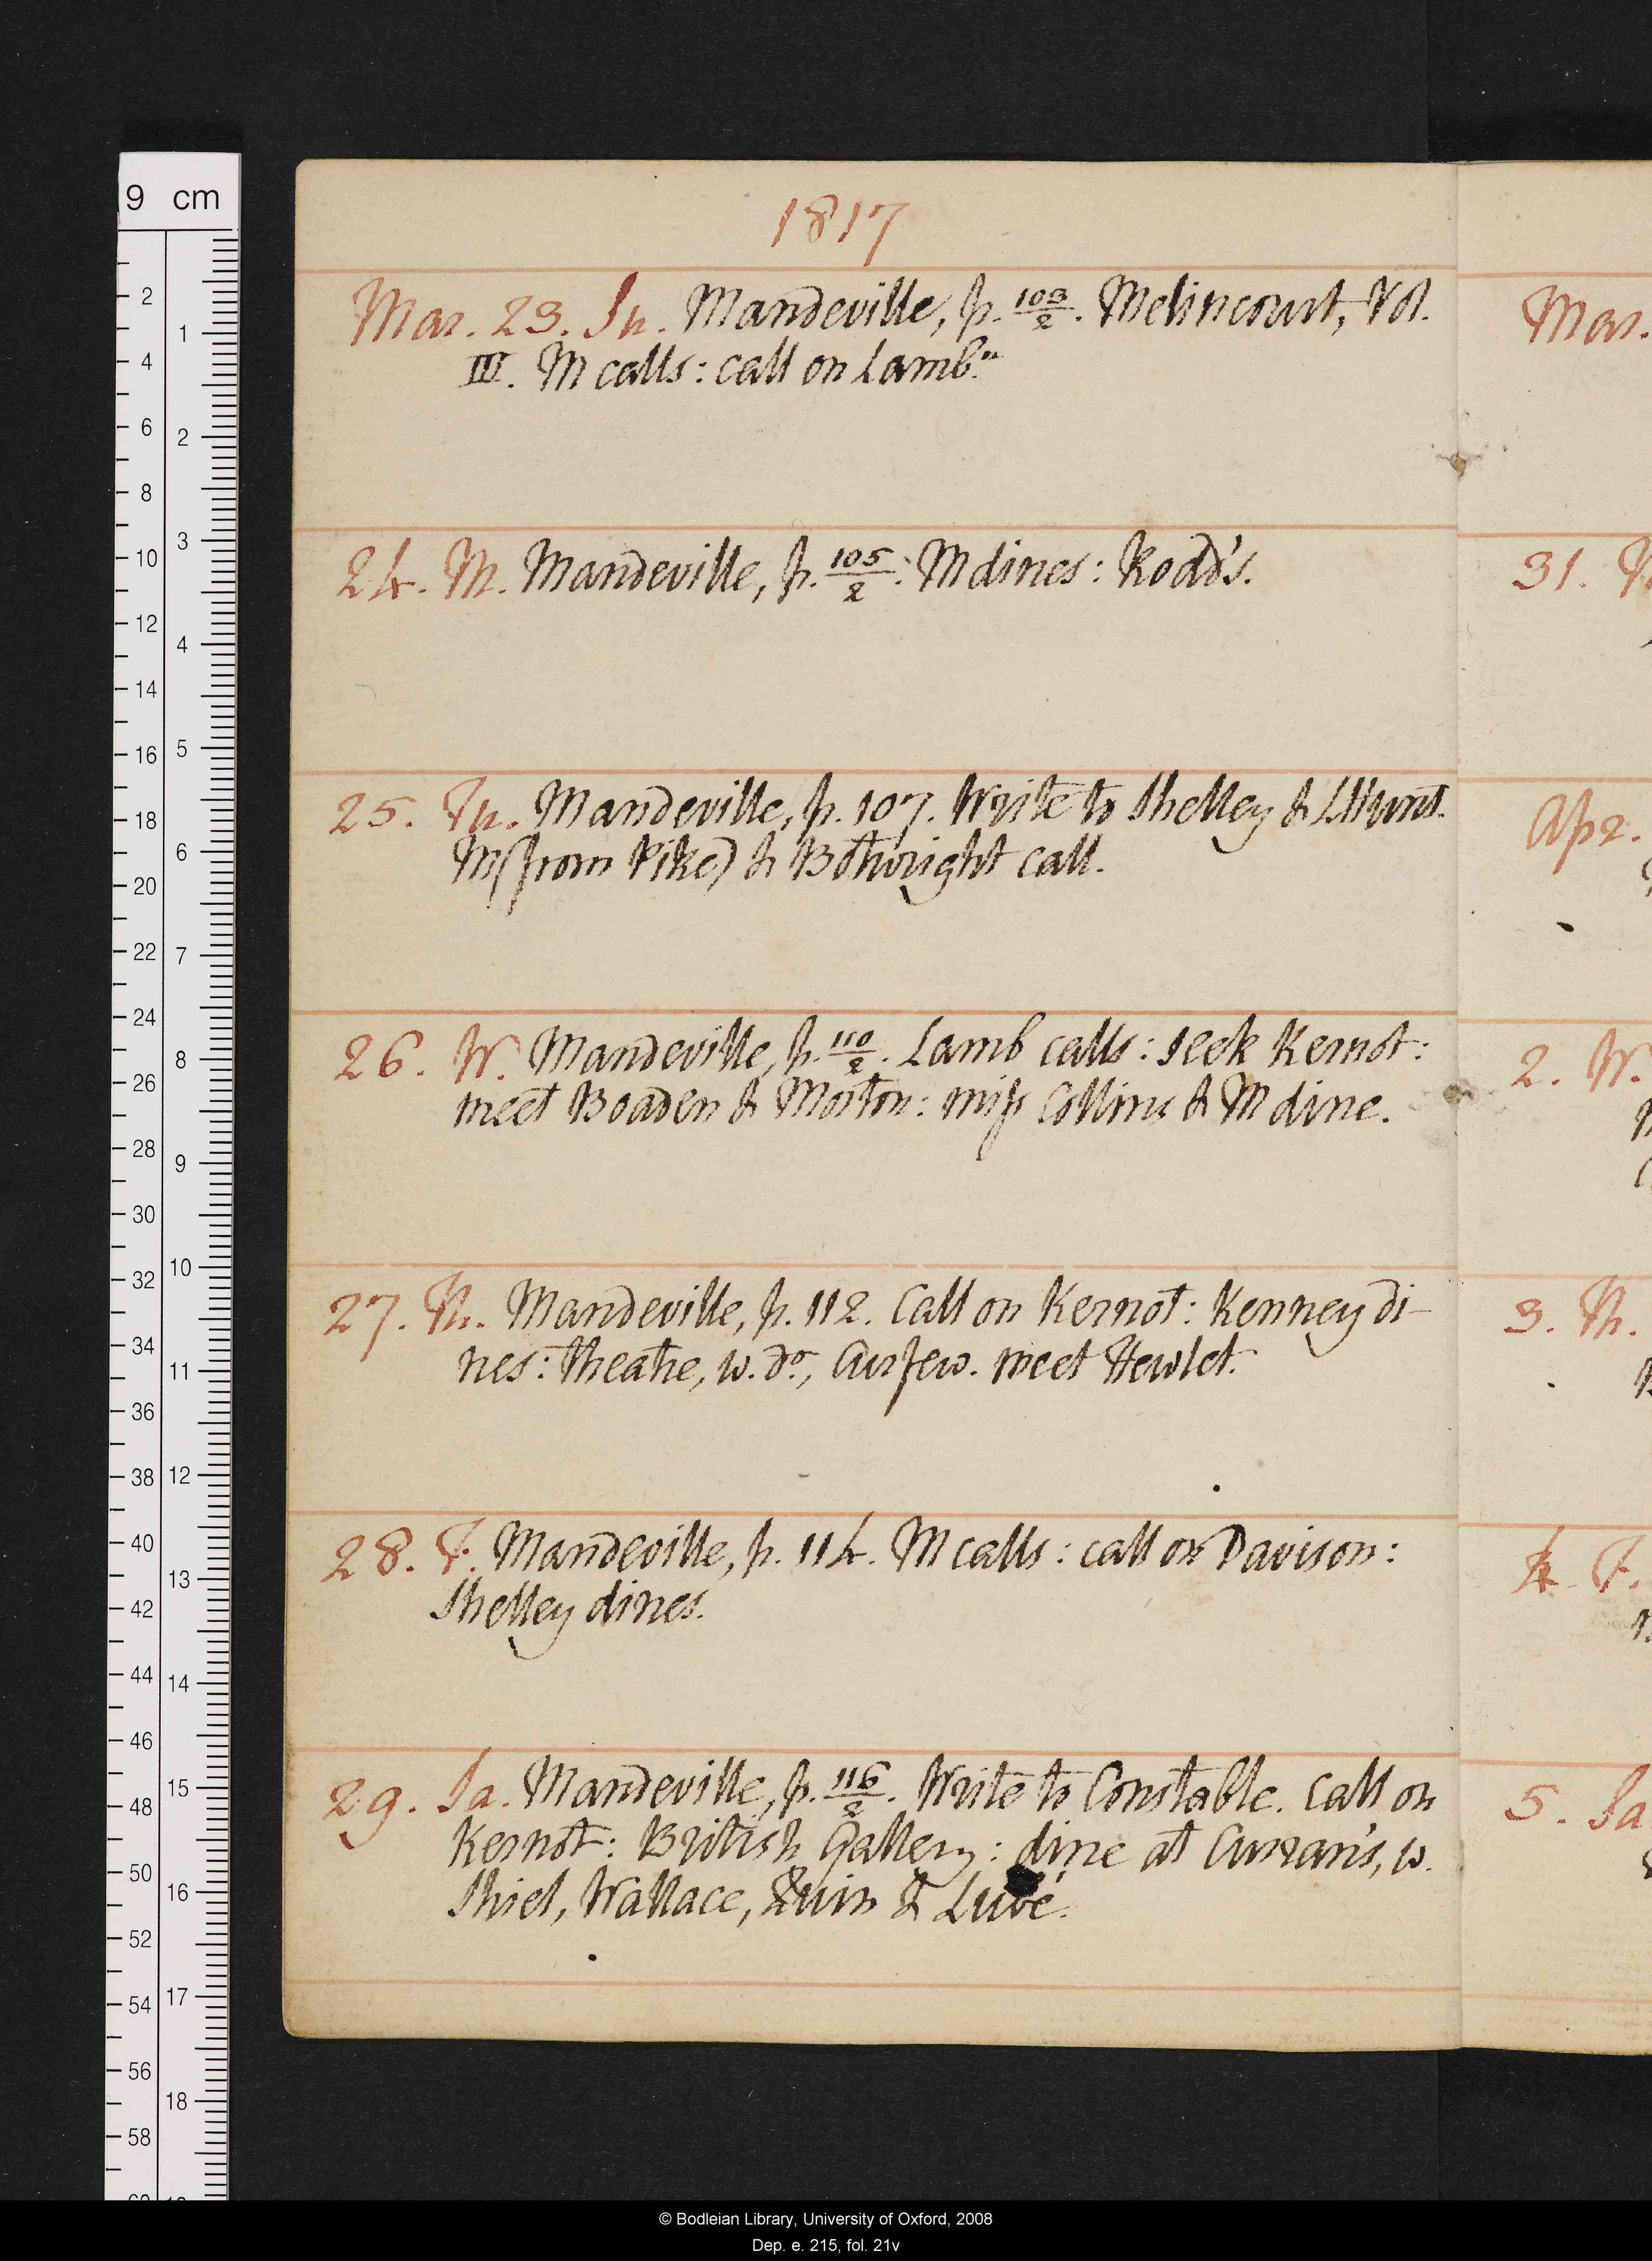 1817
Mar. 23. Su. Mandeville, p. 103/2. Melincourt, Vol.
III. M calls: call on Lamb. n
24. M. Mandeville, p. 105/2. M dines: Rodd's.
25. Tu. Mandeville, p. 107. Write to Shelley & LHunt.
M (from Pike) & Bothwright call.
26. W. Mandeville, p. 110/2. Lamb calls: seek Kernot:
meet Boaden & Morton: miss Collins & M dine.
27. Th. Mandeville, p. 112. Call on Kernot: Kenney di-
nes: theatre, w. do, Curfew. meet Hewlet.
28. F. Mandeville, p. 114. M calls: call on Davison:
Shelley dines.
29. Sa. Mandeville, p. 116/2. Write to Constable. Call on
Kernot: British Gallery: dine at Curran's, w.
Shiel, Wallace, Quin & Lubé.
Mar.
31.
Apr.
2. W.
3. Th.
4. F.
5. Sa
9 cm
2 4 6 8 10 12 14 16 18 20 22 24 26 28 30 32 34 36 38 40 42 44 46 48 50 52 54 56 58
1 2 3 4 5 6 7 8 9 10 11 12 13 14 15 16 17 18
© Bodleian Library, University of Oxford, 2008
Dep. e. 215, fol. 21v